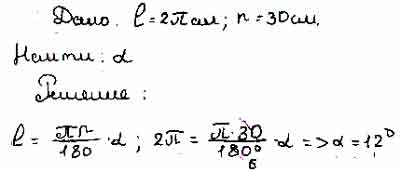 Дано: l = 2π см; r = 30 см.
Найти: α
Решение:
l = πr/180 · α; 2π = π·30/180° · α => α = 12°
6